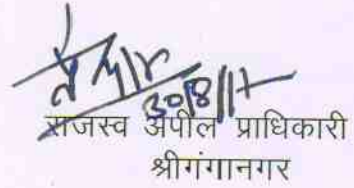 30/8/17
राजस्व अपील प्राधिकारी
श्रीगंगानगर